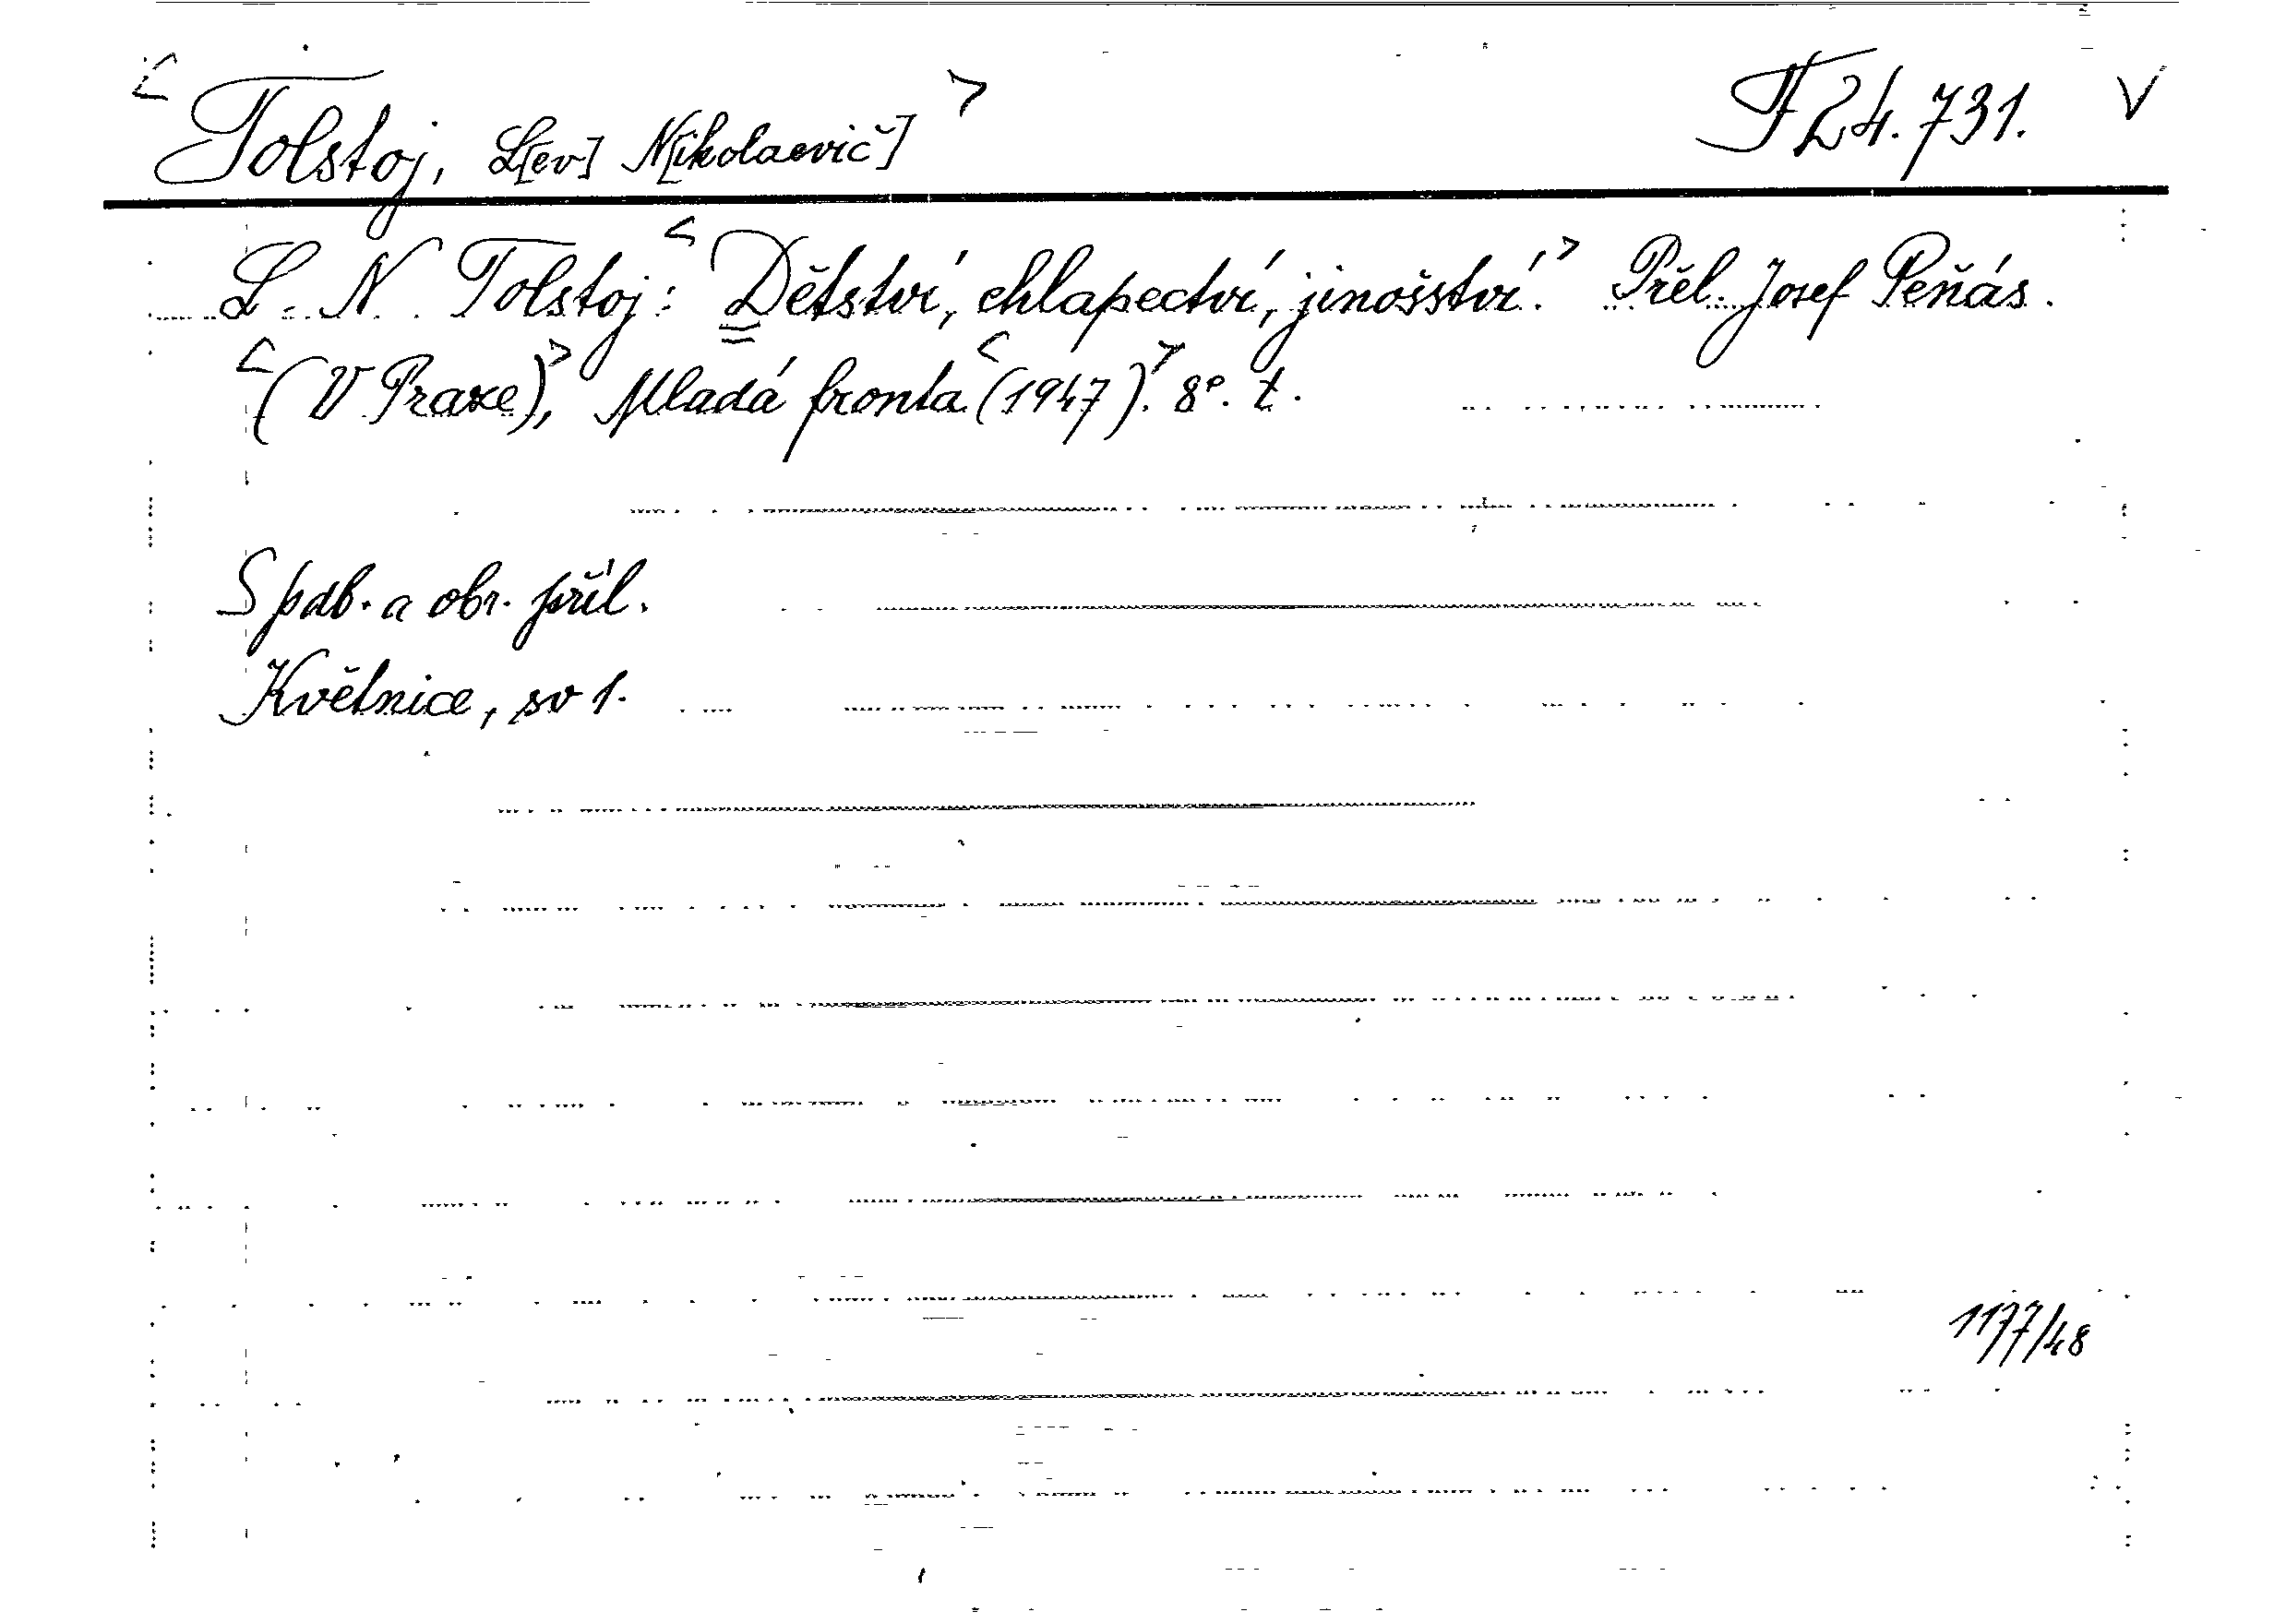 <Tolstoj, L[ev] N[ikolaevič]> F 24.731. V
L. N. Tolstoj: <Dětství, chlapectví, jinošství.> Přel. Josef Peňás.
<(V Praze)>, Mladá fronta <(1947)>. 8°. t.
S pdb. a obr. příl.
Květnice, sv 1.
1177/48